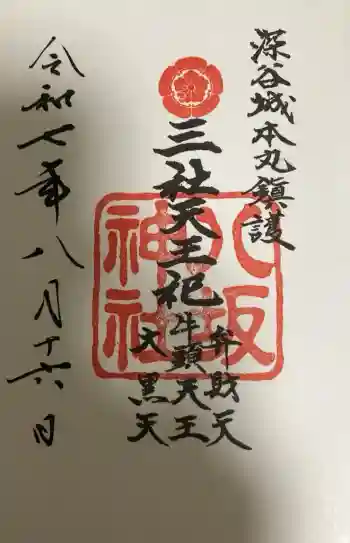 深谷城本丸鎮護
三社天王祀
弁財天
牛頭天王
大黒天
八坂
神社
令和七年八月十六日